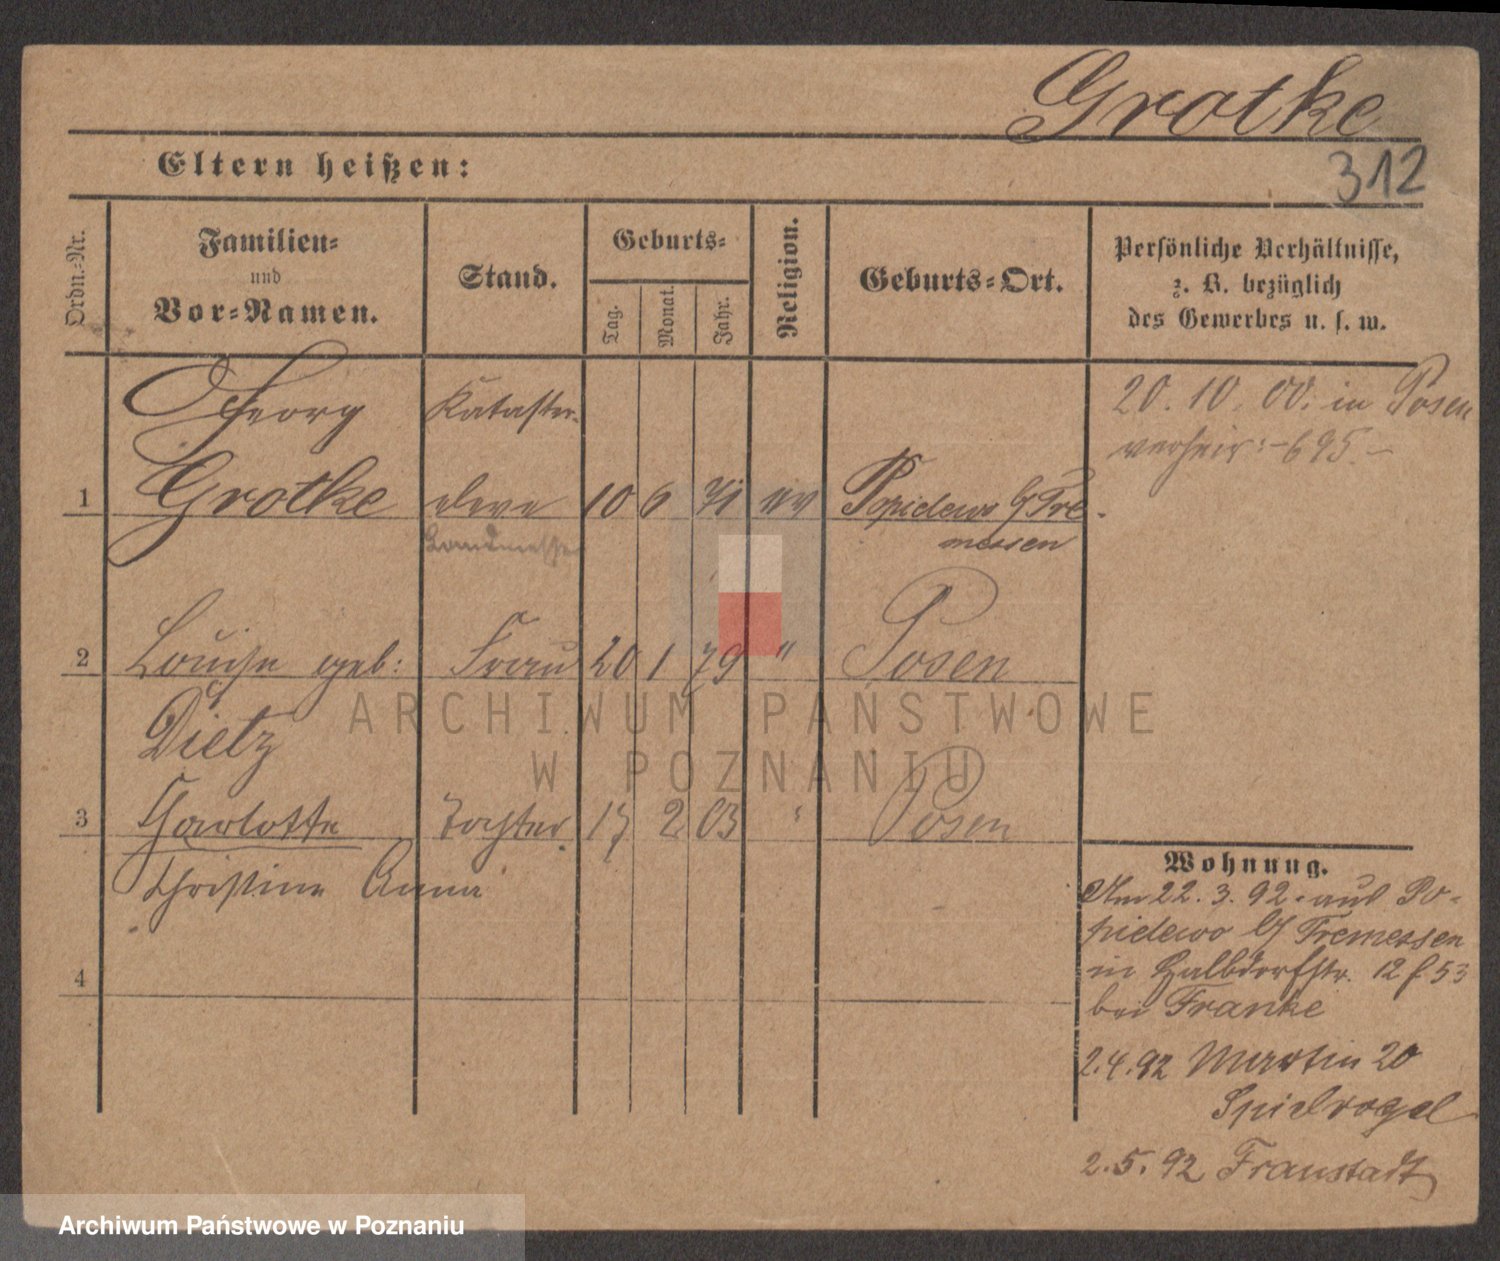 Grotke
312
Eltern heißen:
Ordn.-Nr.
Familien-
und
Vor-Namen.
Stand.
Geburts-
Tag.
Monat.
Jahr.
Religion.
Geburts-Ort.
Persönliche Verhältnisse,
z. B. bezüglich
des Gewerbes u. s. w.
Georg Kataster-
20. 10. 00. in Posen
verheir: - 695. -
1 Grotke eleve 10 6 71 ev Popidewo b/ Tre-
Landmesser messen
2 Louise geb: Frau 20 1 79 " Posen
Dietz
3 Charlotte Tochter 17 2 03 " Posen
Christine Anna
4
Wohnung.
Am 22. 3. 92. aus Po-
pidewo b/ Tremessen
in Halbdorfstr. 12 f. 53
bei Franke
2.4.92 Martin 20
Spielvogel
2.5.92 Fraustadt
ARCHIWUM PAŃSTWOWE
W POZNANIU
Archiwum Państwowe w Poznaniu